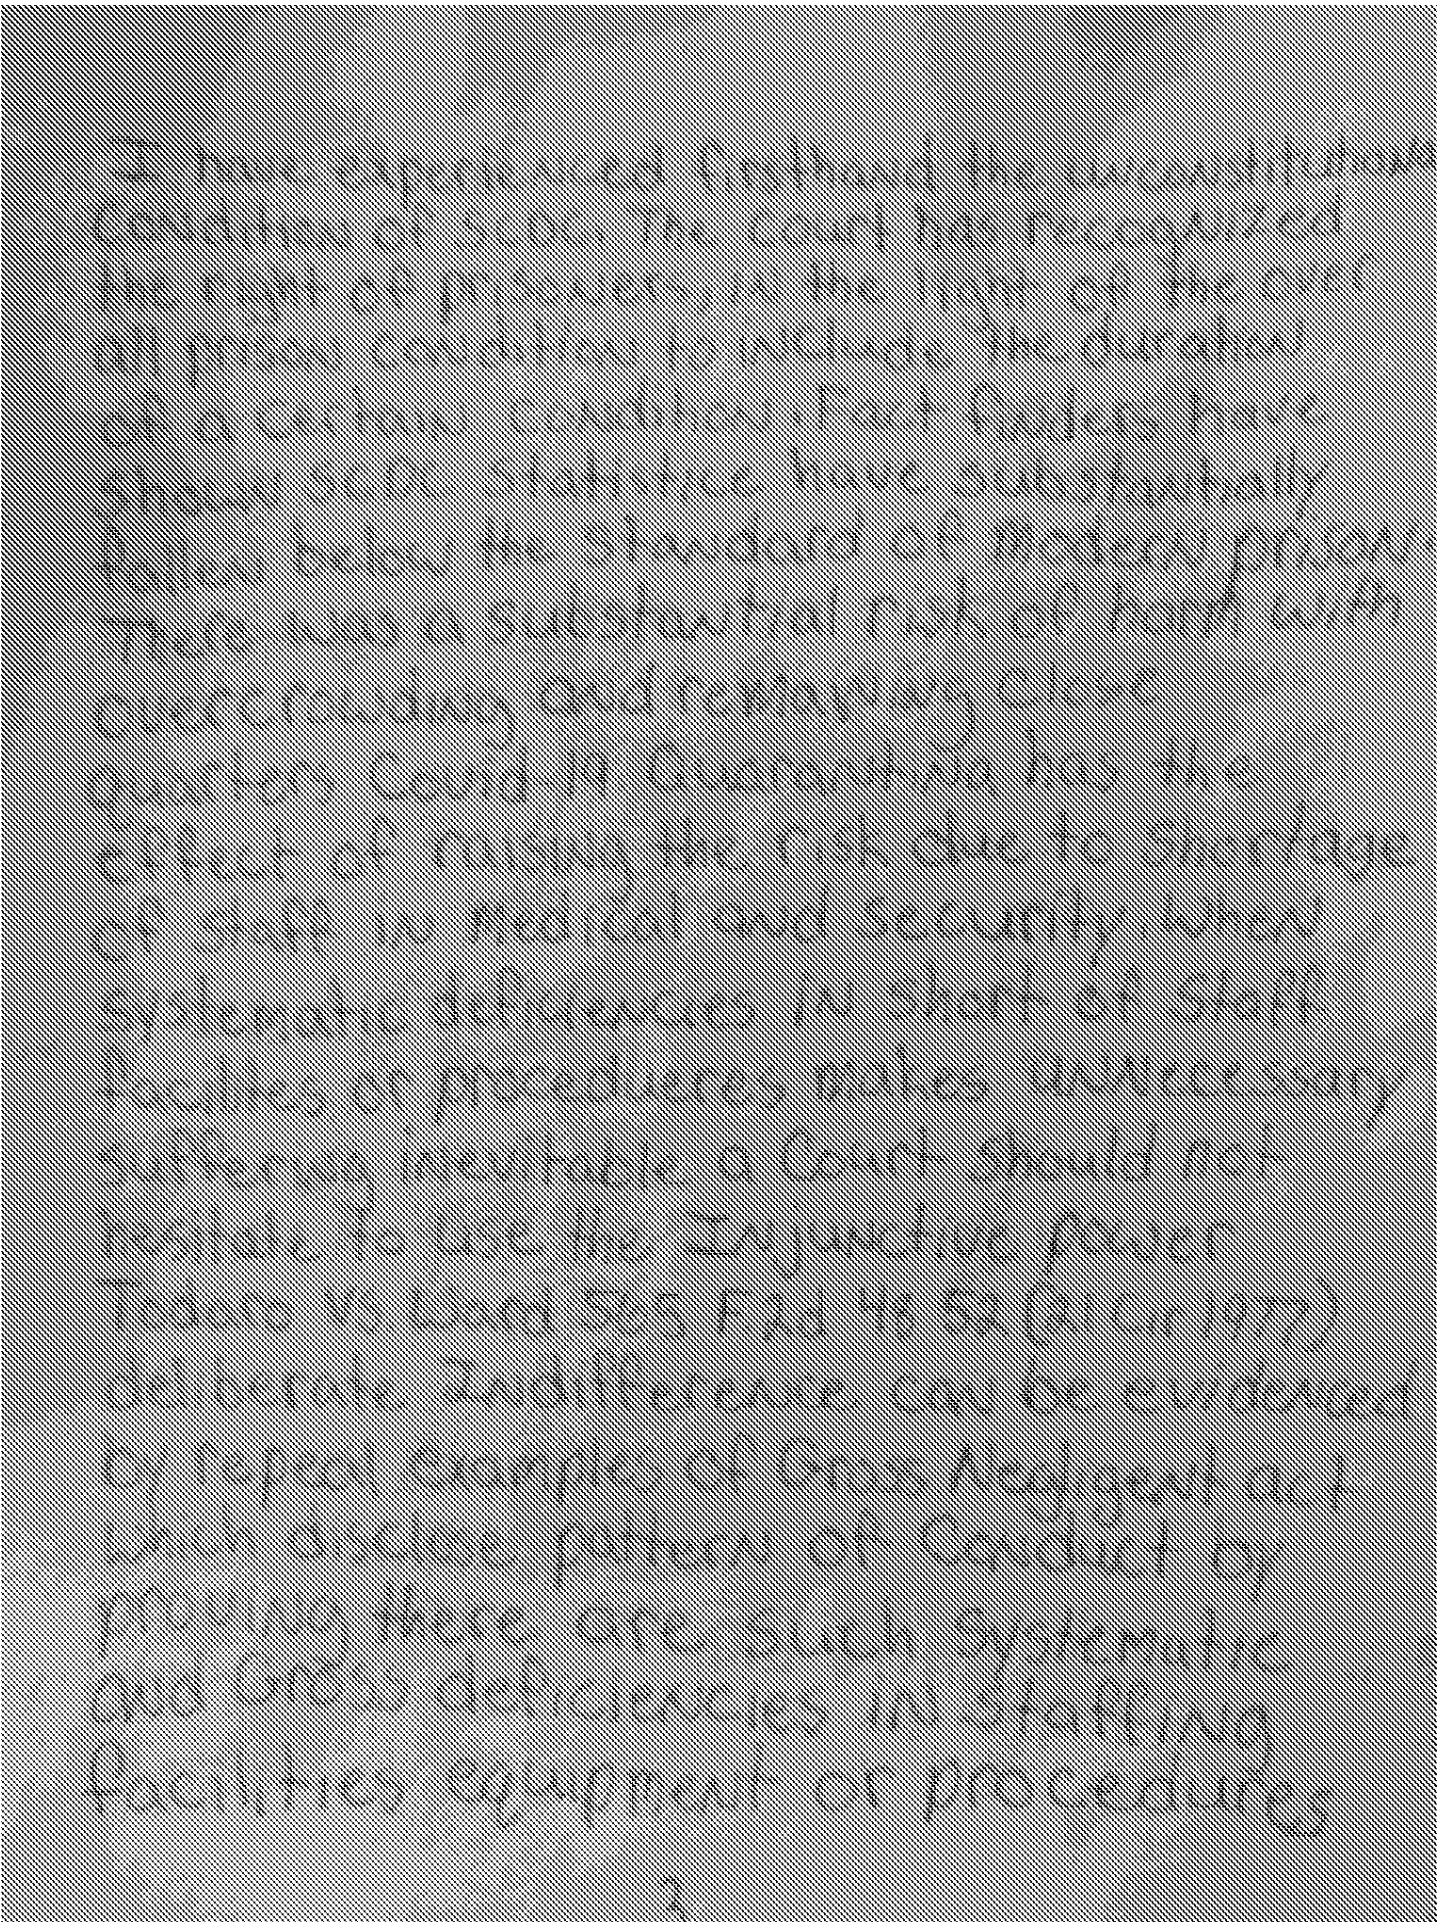 I have experienced firsthand the unconstitutional
Condition of SCDC. The Court has recognized
the right of prisoners, in the light of the over
all prison Conditions to include the duration
of a certain Condition. Past Studies have
SCDC statistics have
makes the Standard of Modern prisons
There was a Substantial risk of harm with
over crowding and remaining Close
quarters Covid 19 Quarantine has the
effect of raising the risk due to Shortage
of staff in Medical and Security, when
Systematic deficiencies in Short of staff
Facilities or procedures makes unnecessary
Suffering inevitable a Court should not
hesitate to use the Injunctive power
Todaro vs Ward 565 F2d 48
deliberate Indifference can be evidenced
by repeat Examples of Gross Negligent acts
which disclose pattern of Conduct by
proving there are such Systematic
and Gross deficiencies in Staffing
Facilities equipment or procedures